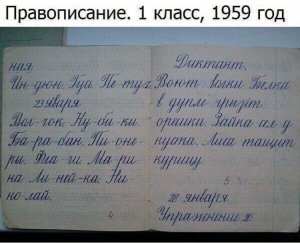 Правописание. 1 класс, 1959 год
ная
Ин-дюк. Гусь. Пе-тух
23 января.
Вол-чок. Ку-би-ки.
Ба-ра-бан. Пи-оне-
ры. Фла-ги. Ма-ри-
на. Ли-ней-ка. Ни-
ко-лай.
4
Диктант.
Воют волки. Белка
в дупле грызёт
орешки. Зайка сел у
куста. Лиса тащит
курицу.
5
января.
Упражнение